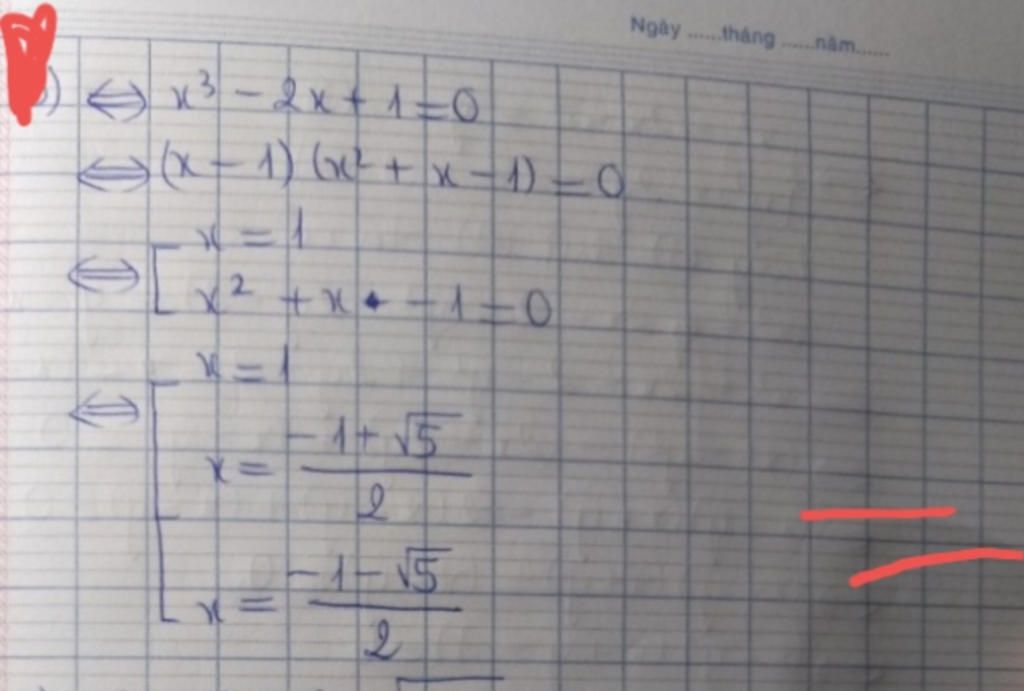 Ngày ......tháng ......năm......
) ⇔ x³ − 2x + 1 = 0
⇔ (x − 1) (x² + x − 1) = 0
⇔ [ x = 1
x² + x − 1 = 0
⇔ [ x = 1
x = (−1 + √5)/2
x = (−1 − √5)/2